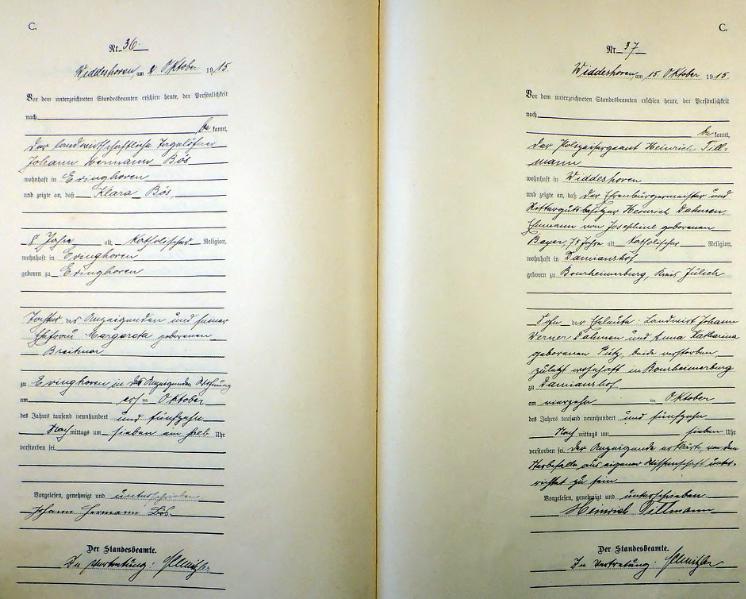 C.
Nr. 36
Widdeshoven, am 8 Oktober 1915.
Vor dem unterzeichneten Standesbeamten erschien heute, der Persönlichkeit
nach
be kannt,
der landwirtschaftliche Tagelöhner
Johann Hermann Bös
wohnhaft in Evinghoven
und zeigte an, daß Klara Bös,
8 Jahre alt, Katholischer Religion,
wohnhaft in Evinghoven
geboren zu Evinghoven
Tochter des Anzeigenden und seiner
Ehefrau Margareta geborenen
zu Evinghoven in des Anzeigenden Wohnung
am Oktober
des Jahres tausend neunhundert und fünfzehn
Nach mittags um sieben Uhr
verstorben sei.
Vorgelesen, genehmigt und unterschrieben
Johann Hermann Bös
Der Standesbeamte.
In Vertretung:
C.
Nr. 37
Widdeshoven, am 15 Oktober 1915.
Vor dem unterzeichneten Standesbeamten erschien heute, der Persönlichkeit
nach
be kannt,
der Polizeisergeant Heinrich Till-
mann
wohnhaft in Widdeshoven
und zeigte an, daß der Ehrenbürgermeister und
Rittergutsbesitzer Heinrich Dahmen,
Ehemann von Josephine geborenen
Bayer, 78 Jahre alt, Katholischer Religion,
wohnhaft in Damianshof
geboren zu Bourheimerburg, Kreis Jülich
Sohn der Eheleute: Landwirt Johann
Werner Dahmen und Anna Katharina
geborenen Pütz, beide verstorben
zuletzt wohnhaft in Bourheimerburg
zu Damianshof
am vierzehn ten Oktober
des Jahres tausend neunhundert und fünfzehn
Nach mittags um sieben Uhr
verstorben sei. Der Anzeigende erklärt, von dem
Sterbefalle aus eigener Wissenschaft unter-
richtet zu sein
Vorgelesen, genehmigt und unterschrieben
Heinrich Tillmann
Der Standesbeamte.
In Vertretung: